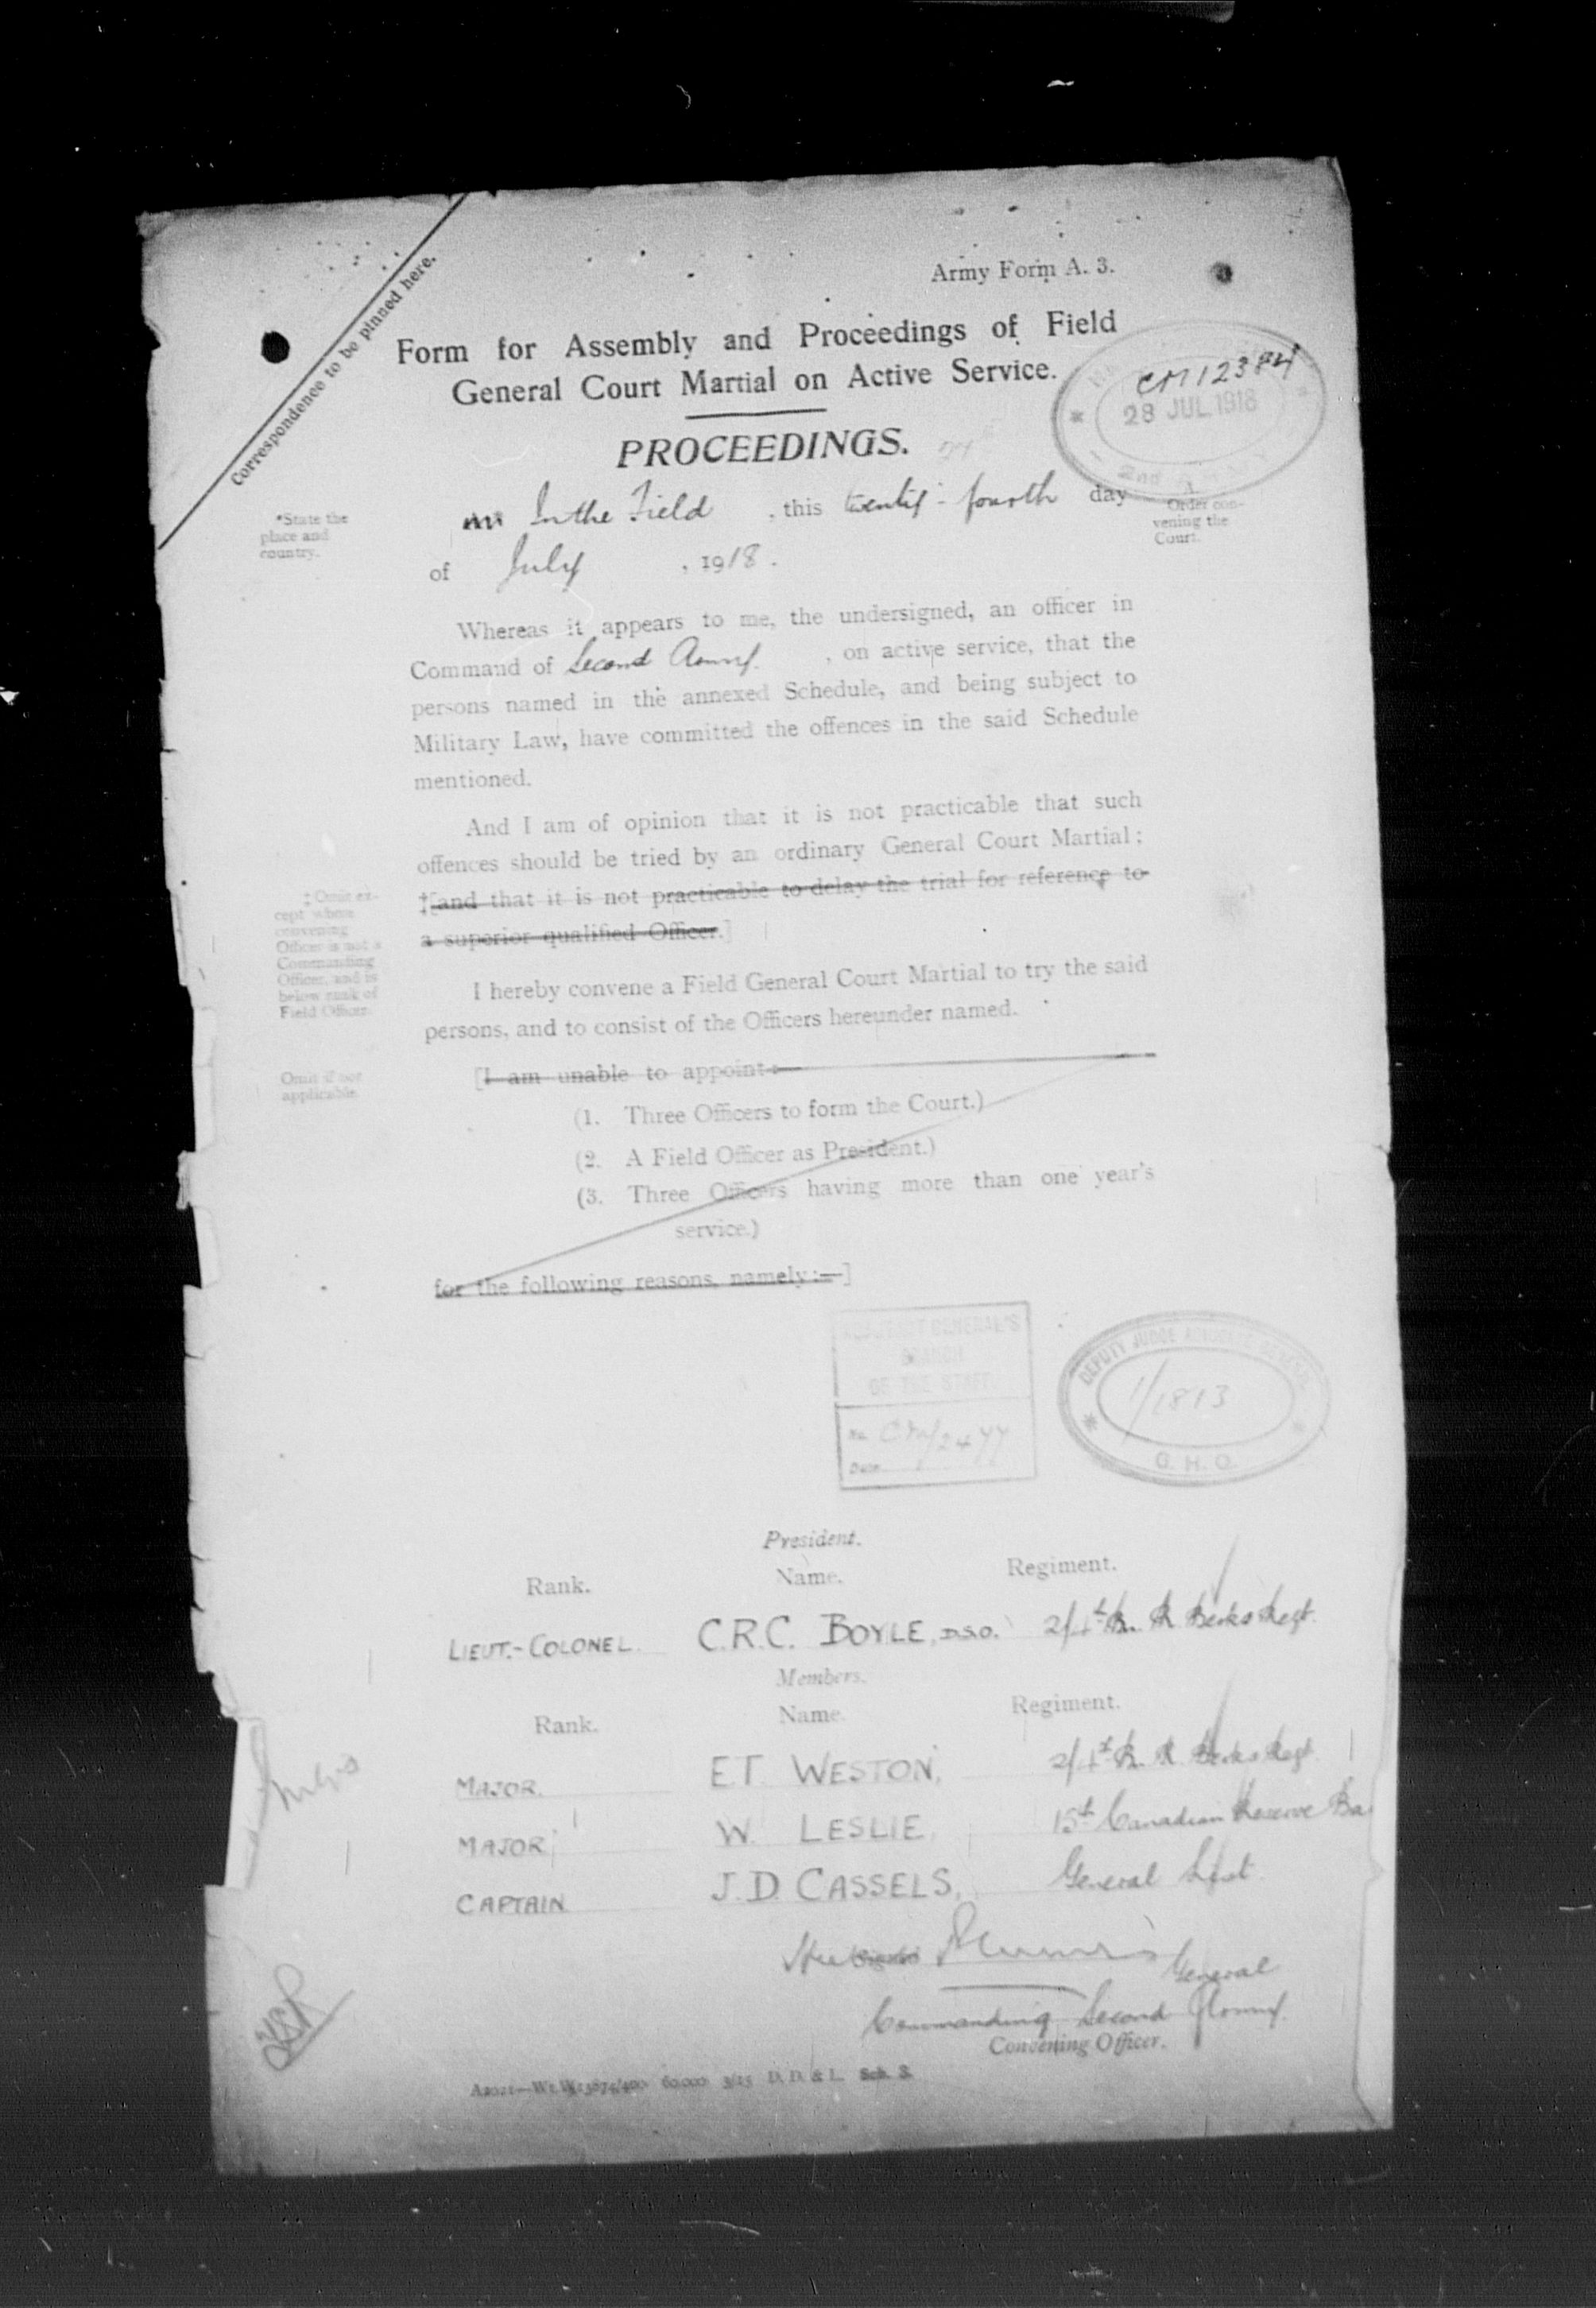 Army Form A. 3.
Correspondence to be pinned here.
Form for Assembly and Proceedings of Field
General Court Martial on Active Service.
CM 12384
28 JUL 1918
2nd
PROCEEDINGS.
*State the
place and
country.
In the Field , this twenty-fourth day
A.
Order con-
vening the
Court.
of July , 1918.
Whereas it appears to me, the undersigned, an officer in
Command of Second Army. , on active service, that the
persons named in the annexed Schedule, and being subject to
Military Law, have committed the offences in the said Schedule
mentioned.
And I am of opinion that it is not practicable that such
offences should be tried by an ordinary General Court Martial;
‡[and that it is not practicable to delay the trial for reference to
a superior qualified Officer.]
‡ Omit ex-
cept where
convening
Officer is not a
Commanding
Officer, and is
below rank of
Field Officer.
I hereby convene a Field General Court Martial to try the said
persons, and to consist of the Officers hereunder named.
Omit if not
applicable
[I am unable to appoint:—
(1. Three Officers to form the Court.)
(2. A Field Officer as President.)
(3. Three Officers having more than one year's
service.)
for the following reasons, namely:—]
ADJUTANT GENERAL'S
BRANCH
OF THE STAFF
No. CM/2477
Date
DEPUTY JUDGE ADVOCATE GENERAL
1/1813
G. H. Q.
President.
Rank. Name. Regiment.
LIEUT.-COLONEL. C.R.C. BOYLE, D.S.O. 2/4th Bn. R. Berks Regt.
Members.
Rank. Name. Regiment.
MAJOR. E.T. WESTON, 2/4th Bn. R. Berks Regt.
MAJOR W. LESLIE, 15th Canadian Reserve Ba
CAPTAIN J.D. CASSELS, General List
General
Commanding Second Army.
Convening Officer.
60,000 3/15 D. D. & L. Sch. S.